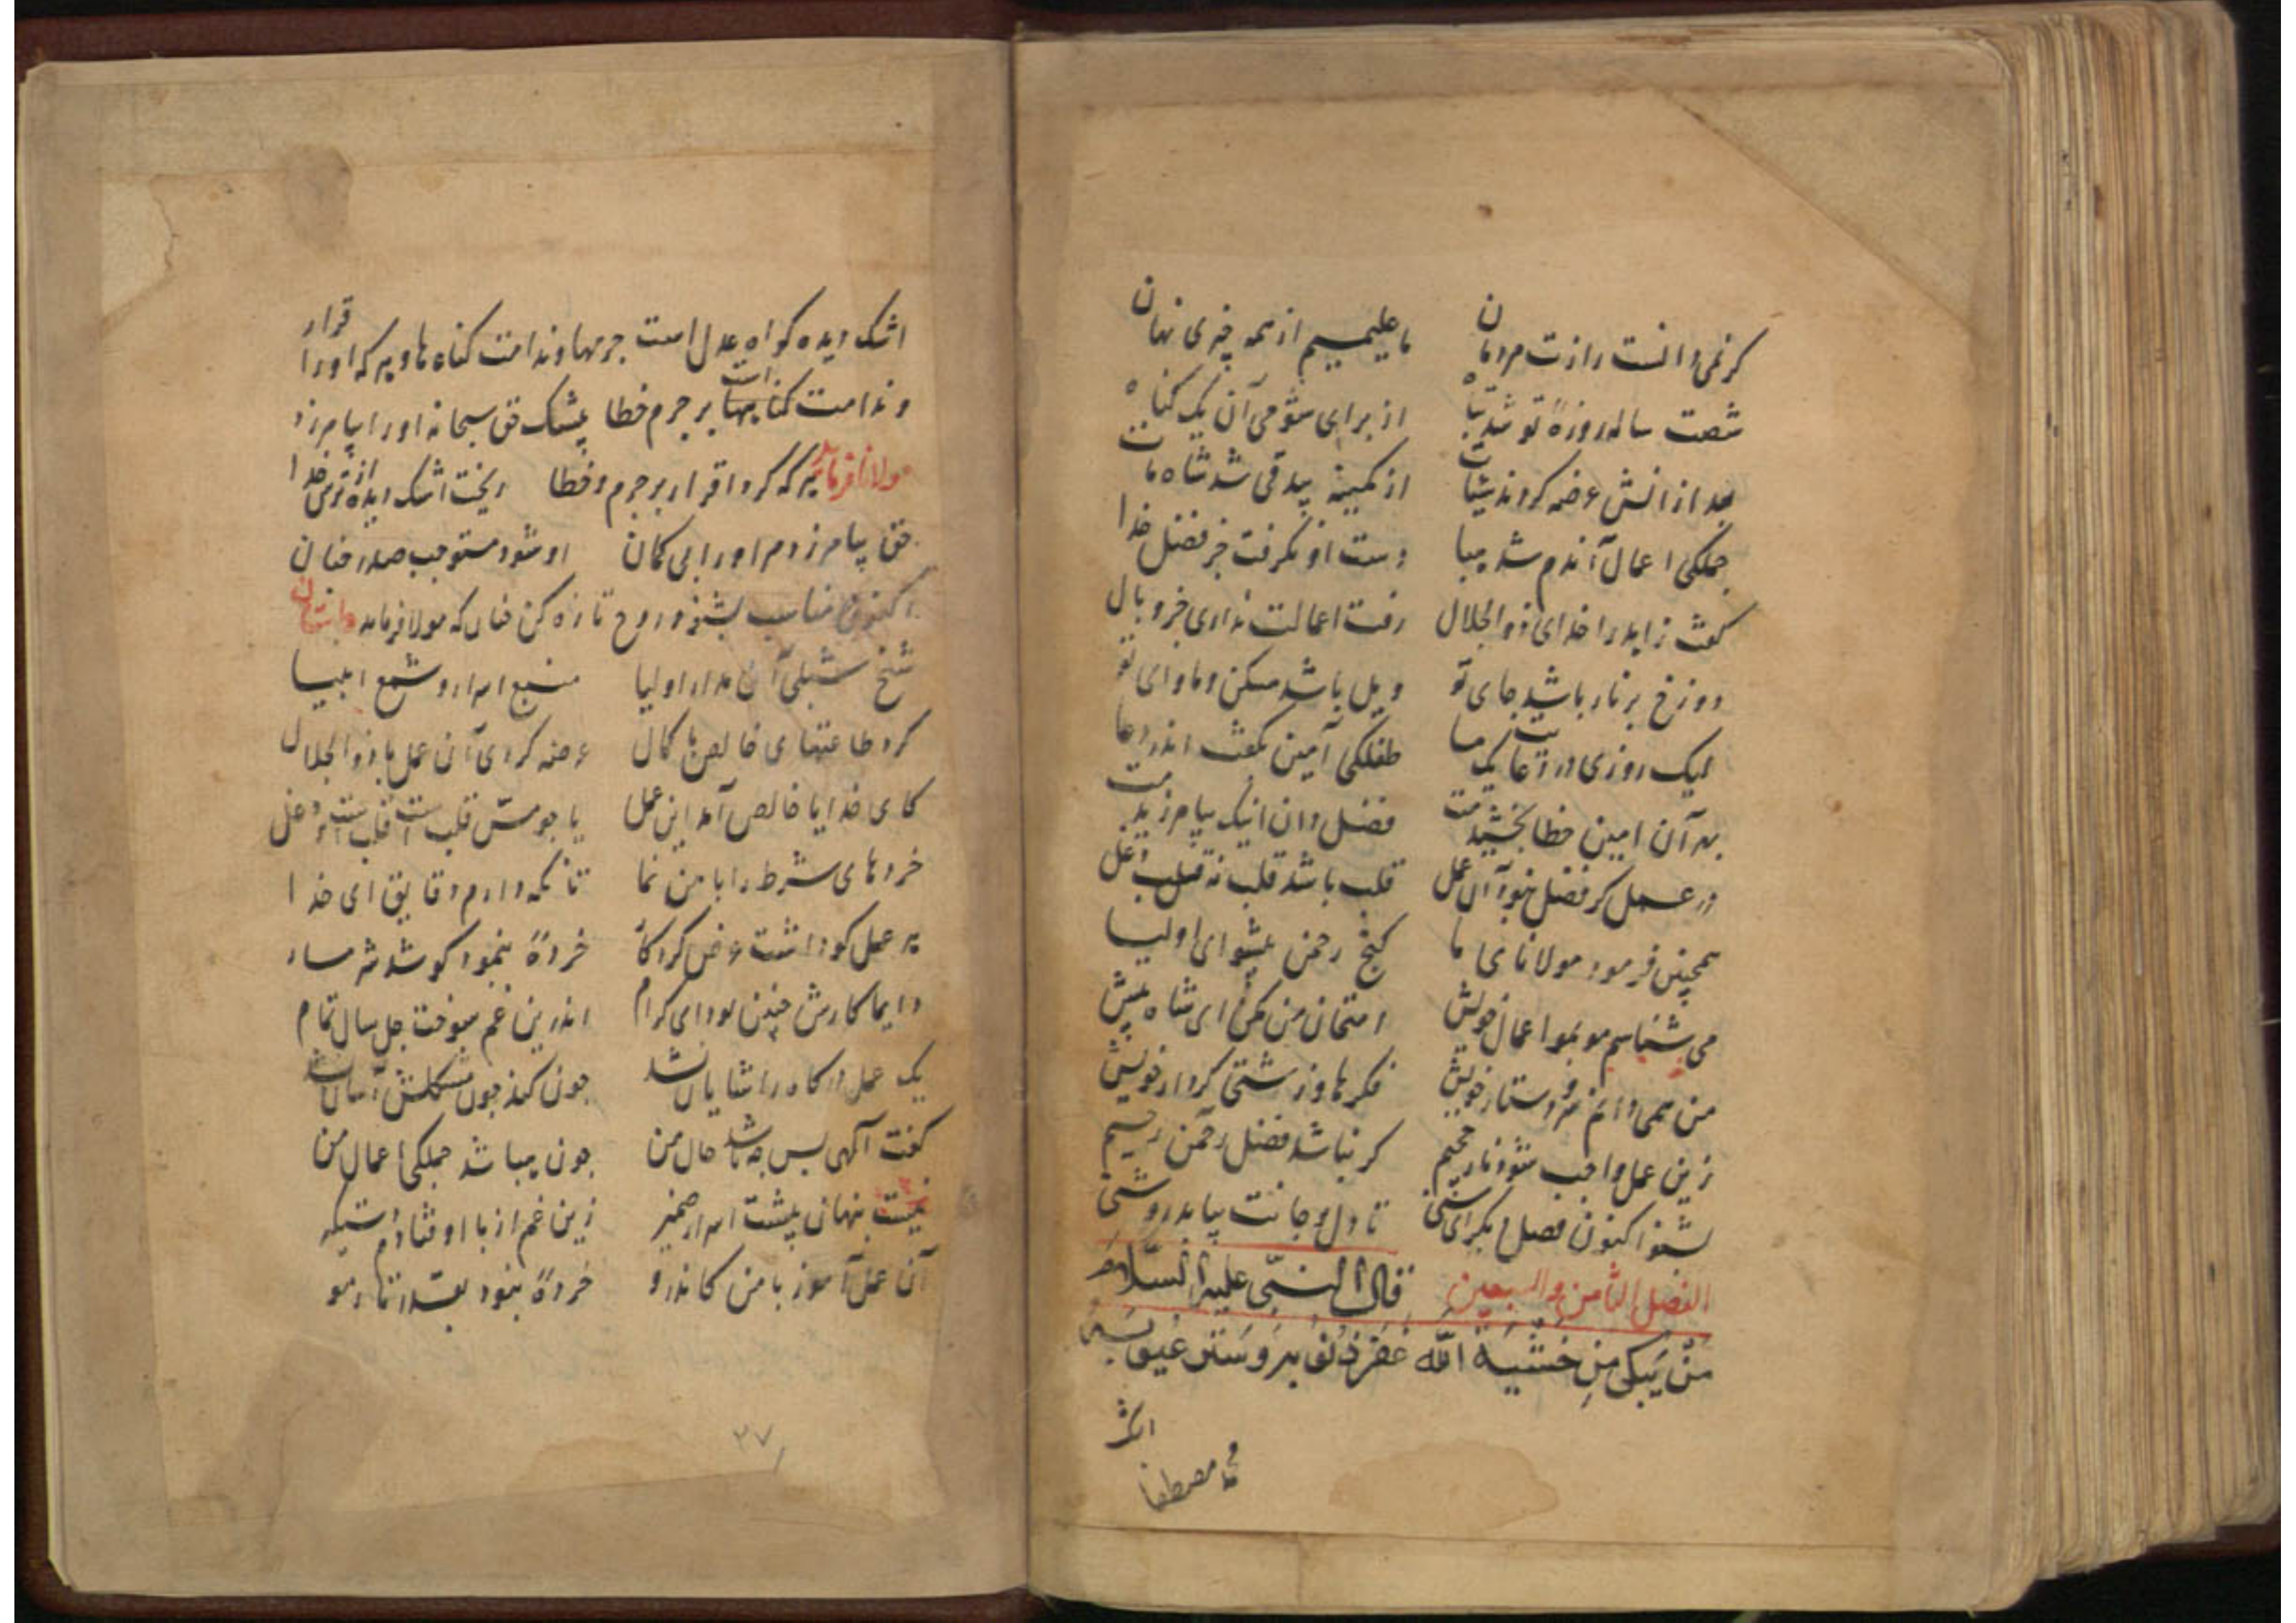 کر نمی دانست رازت مردمان ما علیمیم از همه چیزی نهان
شصت ساله روزهٔ تو شد تباه از برای شومی آن یک کناه
بعد از انش عرضه کردند از کمینه بیدقی شد شاه مات
جملکی اعمال آندم شد هبا دست او نکرفت جز فضل خدا
کفت زاهد را خدای ذوالجلال رفت اعمالت نداری جز وبال
دوزخ پر نار باشد جای تو ویل باشد مسکن و ماوای تو
لیک روزی در دعا طفلکی آمین بکفت اندر دعا
به آن امین خطا بخشیدمت فضل دان اینک بیامرزیدمت
در عمل کر فضل نبود آن عمل قلب باشد قلب نه قلب دغل
همچنین فرمود مولانای ما کنج رحمن پیشوای اولیا
می شناسم مو بمو اعمال خویش امتحان من مکن ای شاه پیش
من همی دانم سر و دستار خویش فکرها و زشتی کردار خویش
زین عمل واجب شود نار جحیم کر نباشد فضل رحمن رحیم
بشنو اکنون فصل دیکر ای سنی تا دل و جانت بیابد روشنی
الفصل الثامن والسبعین قال النبی علیه السلام
من یبکی من خشیة الله غفر ذنوبه و ستر عیوبه
اشک
اشک دیده کواه عدل است جرمها و ندامت کناه ها و هر که او را قرار
و ندامت کناهها است بر جرم خطا بیشک حق سبحانه او را بیامرزد
مولانا فرماید هر که کرد اقرار بر جرم و خطا ریخت اشک دیده از ترس خدا
حق بیامرزد مر او را بی کمان او شود مستوجب صدر جنان
اکنون مناسب بشنو و روح تازه کن چنان که مولا فرماید داستان
شیخ شبلی آن مدار اولیا منبع اسرار و شمع انبیا
کرد طاعتهای خالص با کمال عرضه کردی آن عمل با ذوالجلال
کای خدایا خالص آمد این عمل یا چو مس قلب است قلب است و دغل
خردهای شرط را با من نما تا نکه دارم دقایق ای خدا
هر عمل کو داشت عرض کردکار خردهٔ بنمود کو شد شرمسار
دایما کارش چنین بود ای کرام اندرین غم سوخت چل سال تمام
یک عمل درکاه را شایان نشد چون کند چون مشکلش آسان نشد
کفت آلهی پس چه باشد حال من چون هبا شد جملکی اعمال من
نیست پنهان پیشت اسرار ضمیر زین غم از پا اوفتادم دستکیر
آن عمل آموز با من کاندرو خردهٔ نبود بقدر تار مو
۳۷